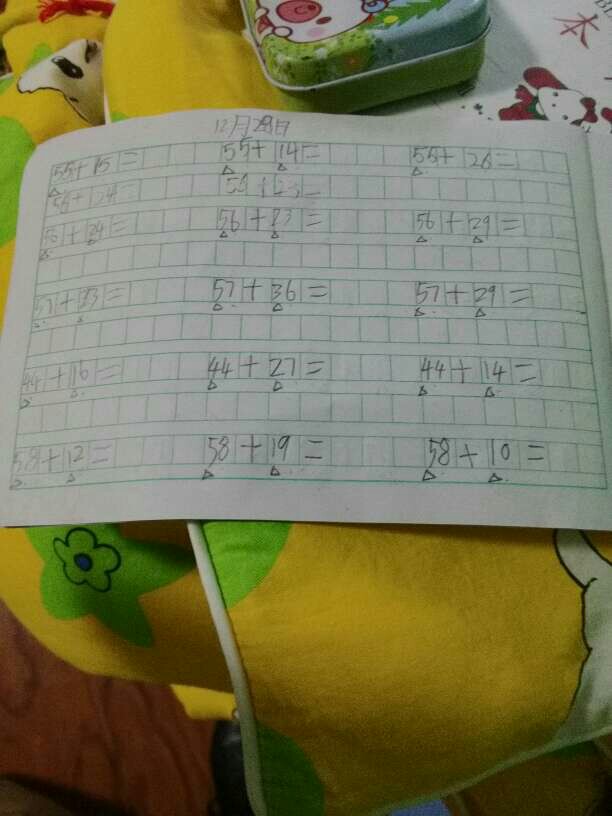 本
12月28日
55+15= 55+14= 55+26=
56+24= 56+23=
56+24= 56+23= 56+29=
57+23= 57+36= 57+29=
44+16= 44+27= 44+14=
58+12= 58+19= 58+10=